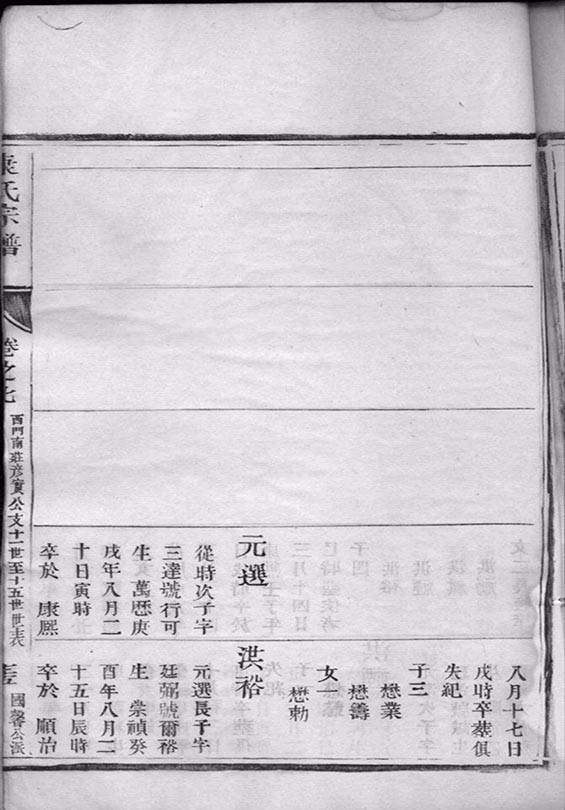 元選
從時次子字
三達號行可
生 萬歷庚
戌年八月二
十日寅時
卒於 康熙
八月十七日
戌時卒葬俱
失紀
子三
懋業
懋籌
女
懋勅
洪裕
元選長子字
廷弼號爾裕
生 崇禎癸
酉年八月二
十五日辰時
卒於 順治
氏宗譜
卷之七
西門南莊彥實公支十一世至十五世世表
國馨公派